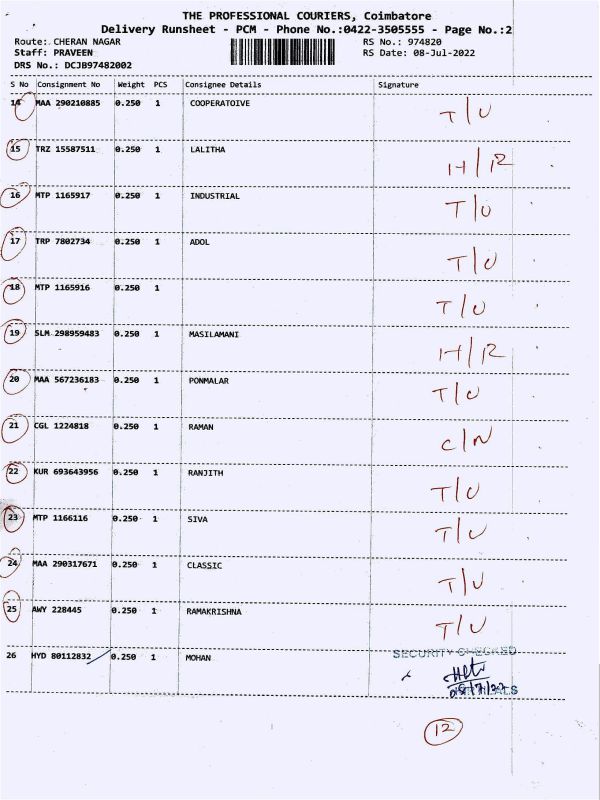 THE PROFESSIONAL COURIERS, Coimbatore
Delivery Runsheet - PCM - Phone No.:0422-3505555 - Page No.:2
Route: CHERAN NAGAR RS No.: 974820
Staff: PRAVEEN RS Date: 08-Jul-2022
DRS No.: DCJB97482002
S No Consignment No Weight PCS Consignee Details Signature
14 MAA 290210885 0.250 1 COOPERATOIVE T/U
15 TRZ 15587511 0.250 1 LALITHA H/R
16 MTP 1165917 0.250 1 INDUSTRIAL T/U
17 TRP 7802734 0.250 1 ADOL T/U
18 MTP 1165916 0.250 1 T/U
19 SLM 298959483 0.250 1 MASILAMANI H/R
20 MAA 567236183 0.250 1 PONMALAR T/U
21 CGL 1224818 0.250 1 RAMAN C/N
22 KUR 693643956 0.250 1 RANJITH T/U
23 MTP 1166116 0.250 1 SIVA T/U
24 MAA 290317671 0.250 1 CLASSIC T/U
25 AWY 228445 0.250 1 RAMAKRISHNA T/U
26 HYD 80112832 0.250 1 MOHAN
SECURITY CHECKED
12